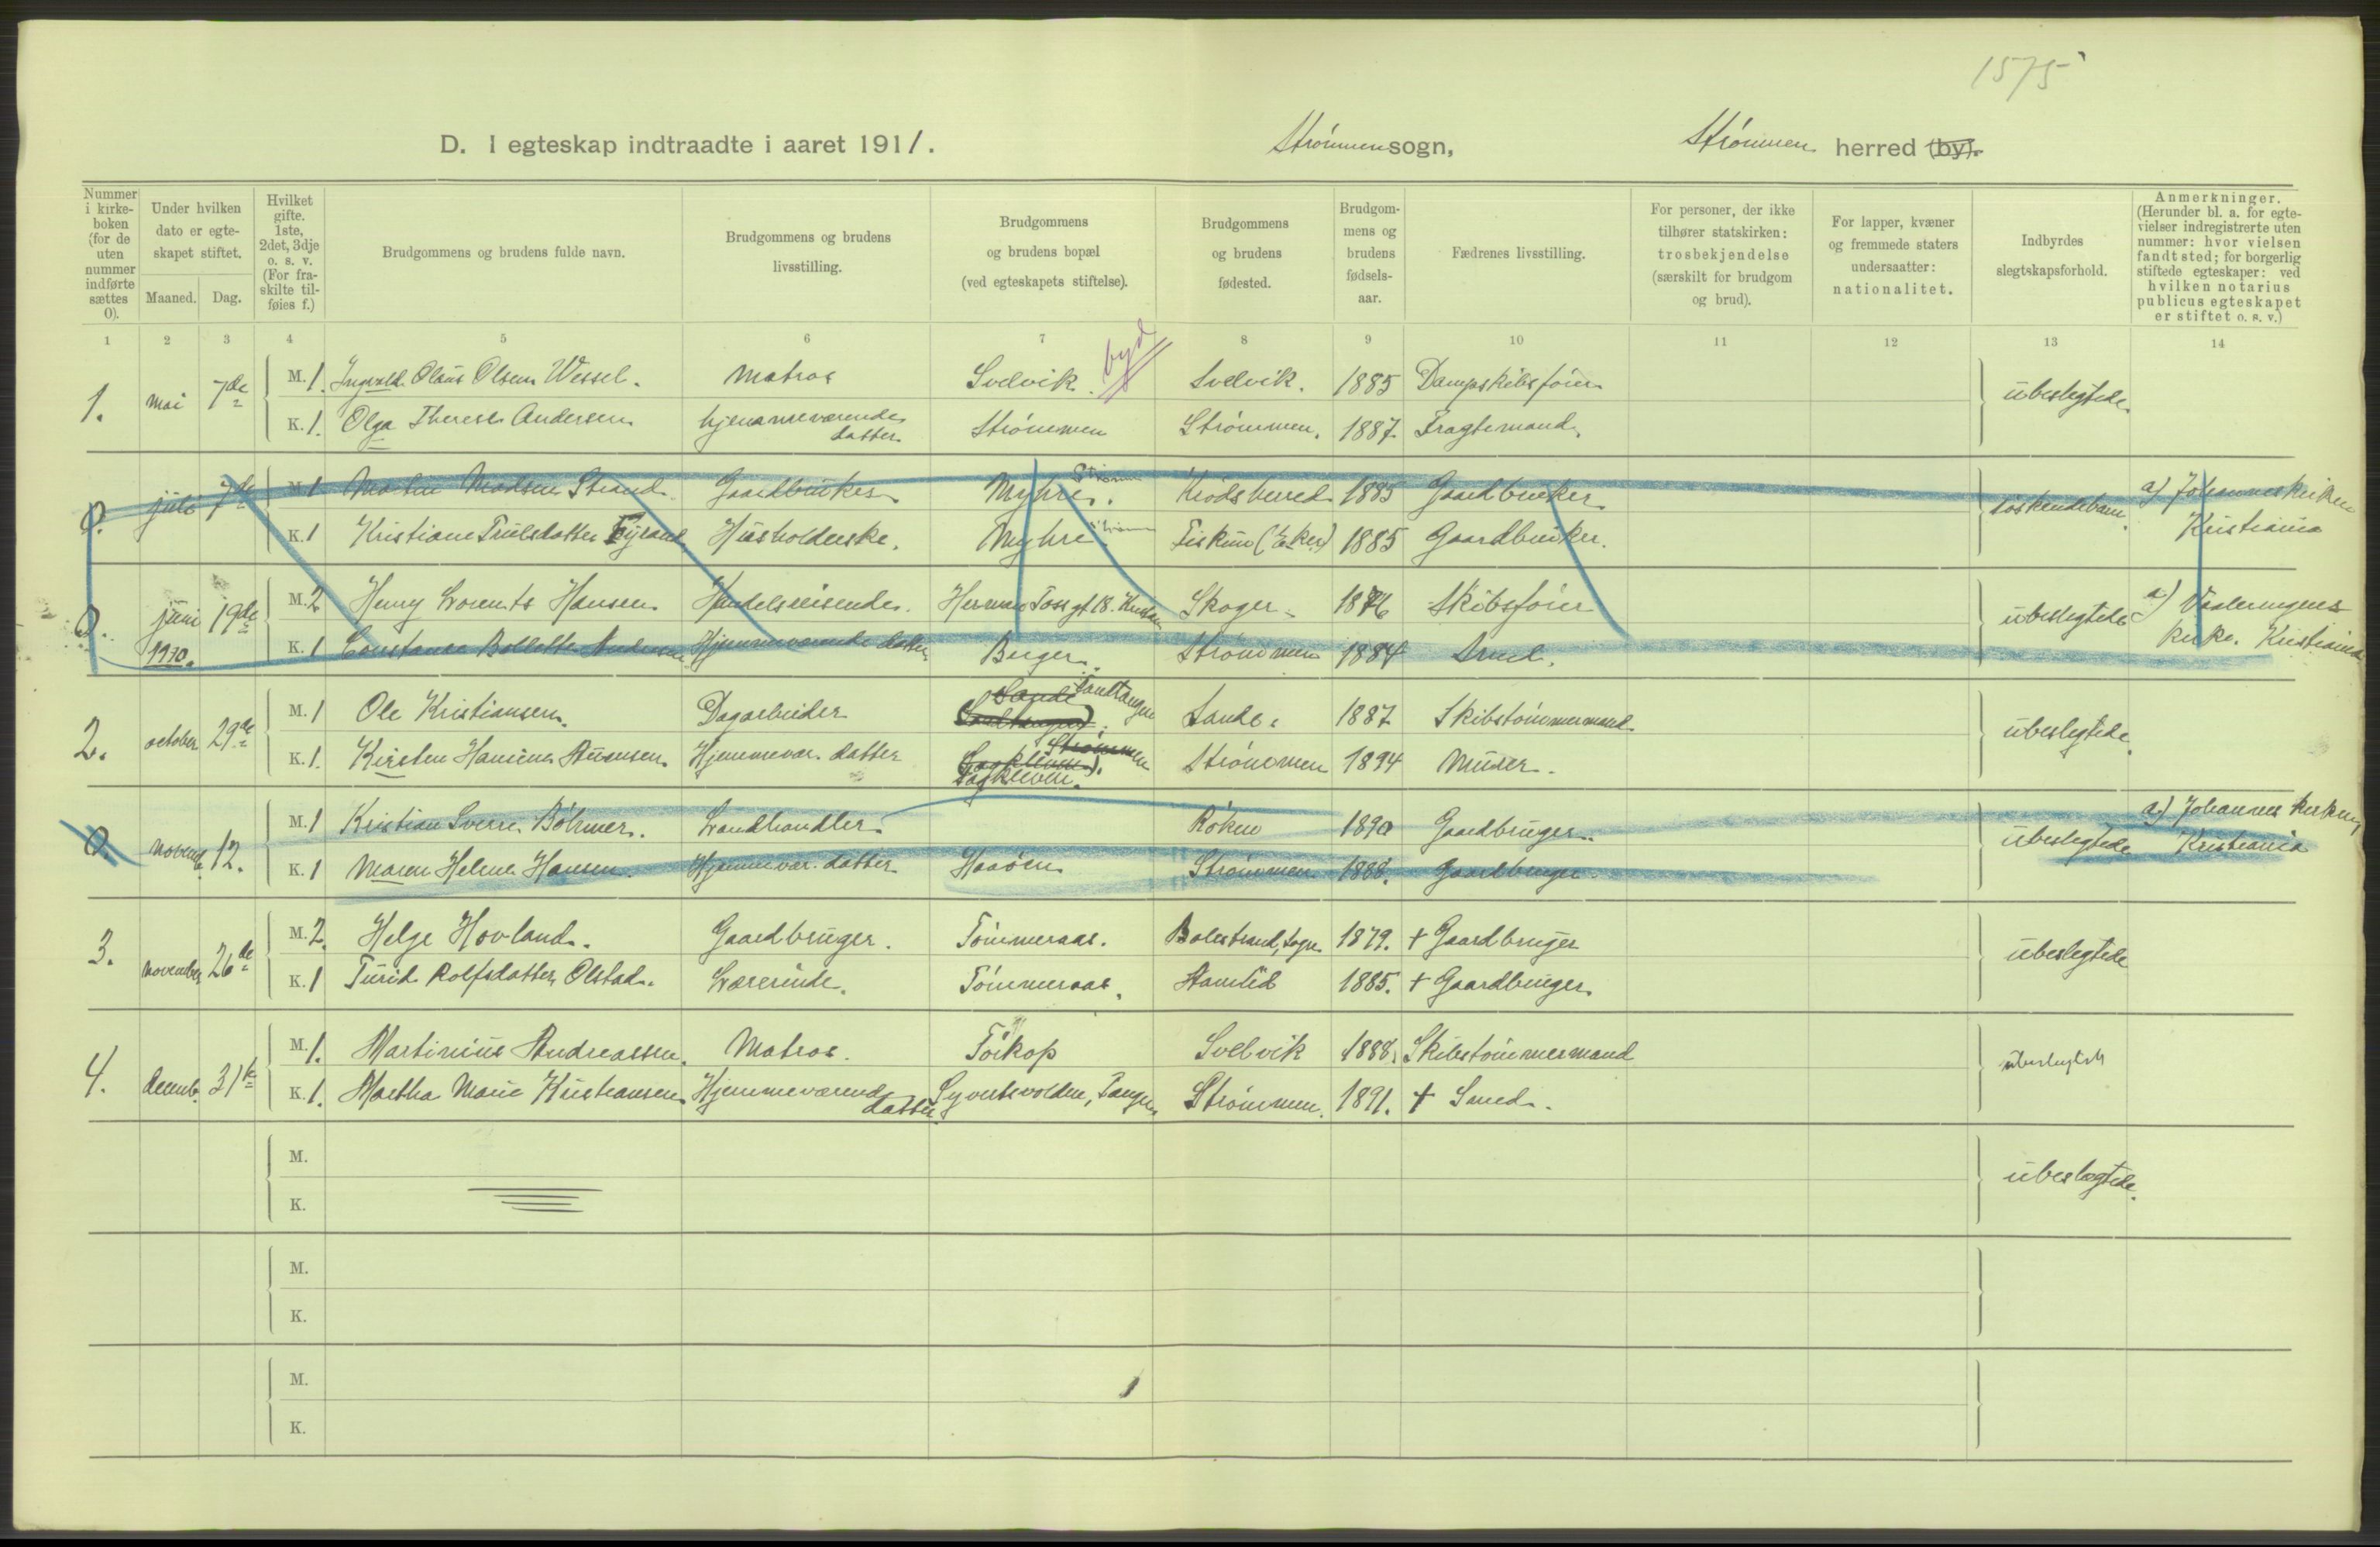 1575
D. I egteskap indtraadte i aaret 1911. Strømmen sogn, Strømmen herred (by).
Nummer i kirkeboken (for de uten nummer indførte sættes 0).
Under hvilken dato er egteskapet stiftet.
Maaned. Dag.
Hvilket gifte. 1ste, 2det, 3dje o. s. v. (For fraskilte tilføies f.)
Brudgommens og brudens fulde navn.
Brudgommens og brudens livsstilling.
Brudgommens og brudens bopæl (ved egteskapets stiftelse).
Brudgommens og brudens fødested.
Brudgommens og brudens fødselsaar.
Fædrenes livsstilling.
For personer, der ikke tilhører statskirken: trosbekjendelse (særskilt for brudgom og brud).
For lapper, kvæner og fremmede staters undersaatter: nationalitet.
Indbyrdes slegtskapsforhold.
Anmerkninger. (Herunder bl. a. for egtevielser indregistrerte uten nummer: hvor vielsen fandt sted; for borgerlig stiftede egteskaper: ved hvilken notarius publicus egteskapet er stiftet o. s. v.)
1 2 3 4 5 6 7 8 9 10 11 12 13 14
1. mai 7de M. 1. Ingvald Olaus Olsen Wessel. Matros Svelvik. byd Svelvik. 1885 Dampskibsfører ubeslegtede
K. 1. Olga Therese Andersen hjemmeværende datter Strømmen Strømmen. 1887 Fragtemand.
0. juli 7de M. 1 Madsen Strand Gaardbruker Myhre. Strøm Krødsherred 1885 Gaardbruker søskendebarn. a) Johanneskirken
K. 1 Kristiane Trulsdatter Husholderske. Myhre Strøm Fiskum (Eker) 1885 Gaardbruker. Kristiania
0. juni 19de M. 2 Henry Lorents Hansen Handelsreisende. Herman Fossgt. 18. Skoger 1876 Skibsfører ubeslegtede a) Vaalerengens
1910. K. 1 Constance Andersen Hjemmeværende datter Berger. Strømmen 1884 Smed. kirke. Kristiania
2. october 29de M. 1 Ole Kristiansen. Dagarbeider Sande Sandtangen Sande. 1887 Skibstømmermand ubeslegtede.
K. 1. Kirsten Hansine Hjemmevær. datter Strømmen Strømmen 1894 Murer.
0. novemb. 12. M. 1 Kristian Sverre Böhmer. Landhandler. Røken 1890 Gaardbruger. ubeslegtede a) Johannes kirken,
K. 1 Maren Helene Hansen. Hjemmevær. datter Haaøen Strømmen 1888. Gaardbruger. Kristiania
3. november 26de M. 2. Helge Hovland. Gaardbruger. Tømmeraas. Balestrand, Sogn 1879. + Gaardbruger ubeslegtede
K. 1 Turid Rolfsdatter Olstad. Lærerinde. Tømmeraas. 1885. + Gaardbruger.
4. decemb. 31te M. 1. Martinius Andreassen. Matros. Tørkop Svelvik 1888. Skibstømmermand ubeslegtede
K. 1. Martha Marie Kristiansen Hjemmeværende datter Syvertsvolden, Tangen Strømmen. 1891. + Smed.
M. ubeslegtede.
K.
M.
K.
M.
K.